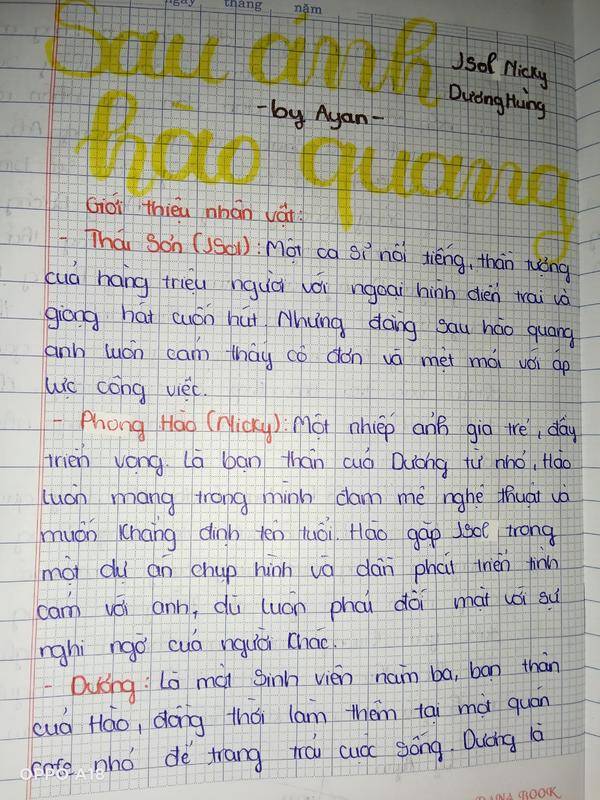 ngày tháng năm
Sau ánh
hào quang
Jsol Nicky
Dương Hùng
-by Ayan-
Giới thiệu nhân vật:
- Thái Sơn (JSol): Một ca sĩ nổi tiếng, thần tượng
của hàng triệu người với ngoại hình điển trai và
giọng hát cuốn hút. Nhưng đằng sau hào quang
anh luôn cảm thấy cô đơn và mệt mỏi với áp
lực công việc.
- Phong Hào (Nicky): Một nhiếp ảnh gia trẻ, đầy
triển vọng. Là bạn thân của Dương từ nhỏ, Hào
luôn mang trong mình đam mê nghệ thuật và
muốn khẳng định tên tuổi. Hào gặp Jsol trong
một dự án chụp hình và dần phát triển tình
cảm với anh, dù luôn phải đối mặt với sự
nghi ngờ của người khác.
- Dương: Là một sinh viên năm ba, bạn thân
của Hào, đồng thời làm thêm tại một quán
cafe nhỏ để trang trải cuộc sống. Dương là
OPPO A18
BOOK